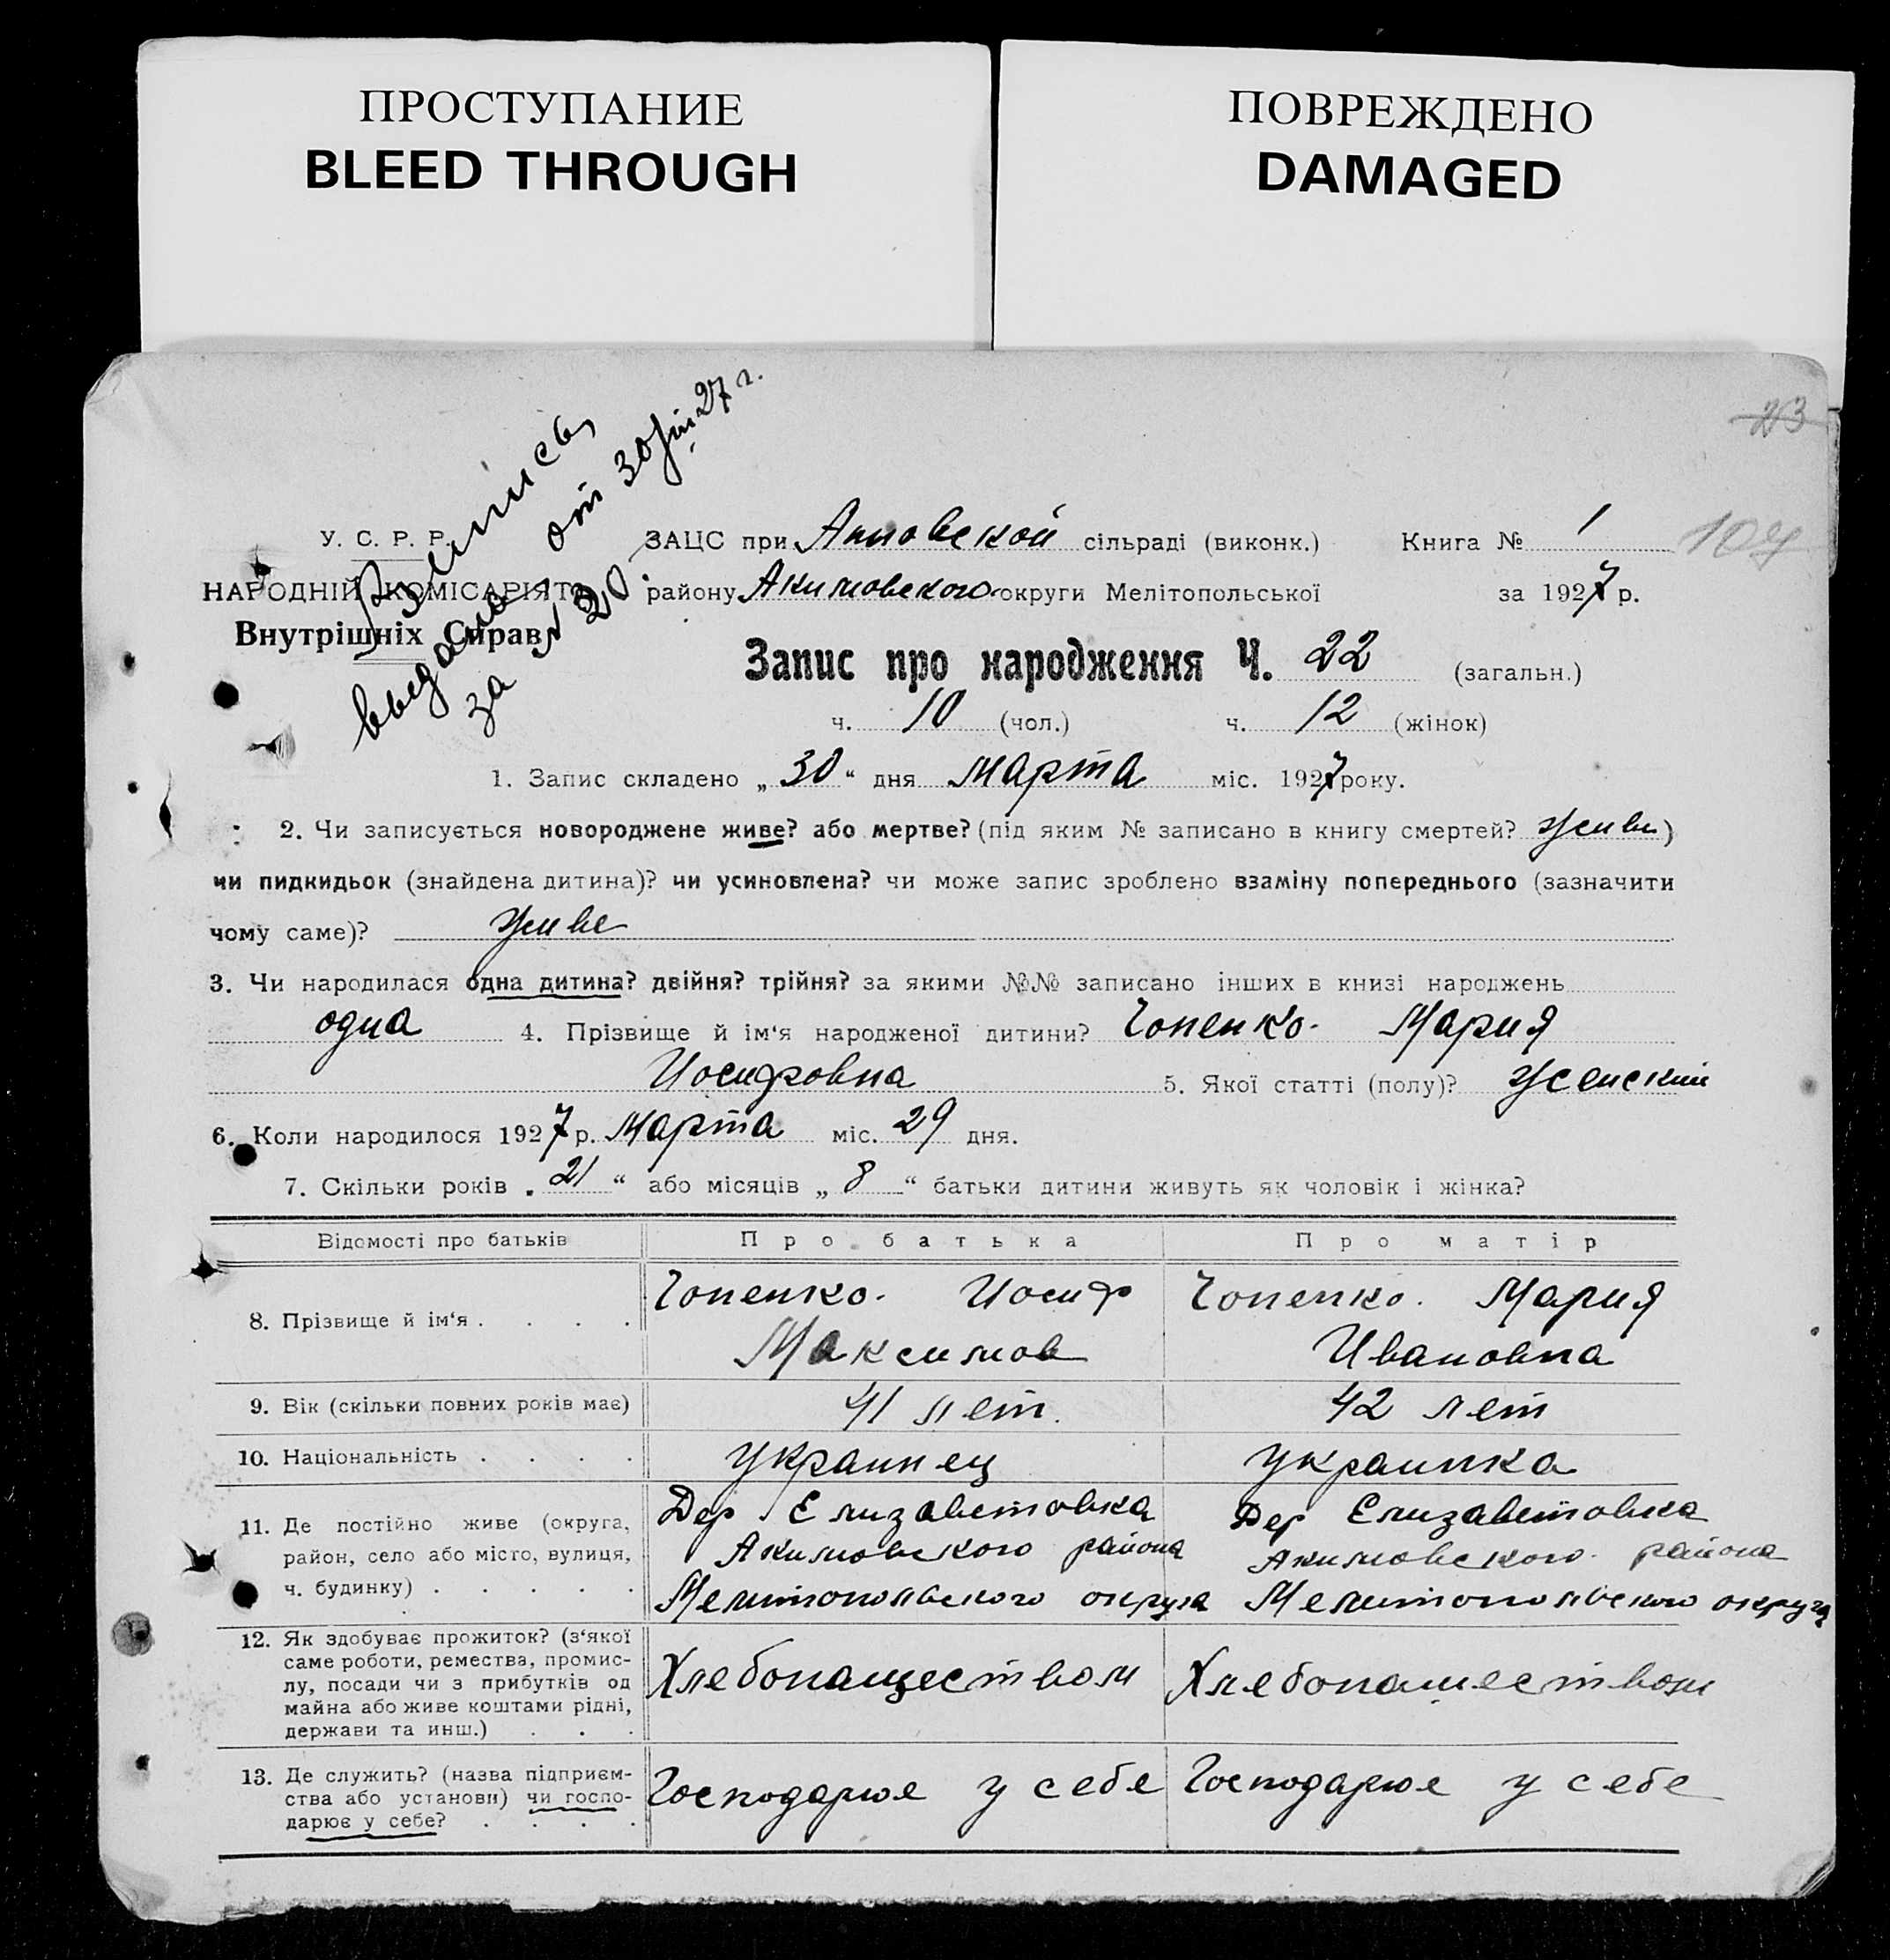 ПРОСТУПАНИЕ
BLEED THROUGH
ПОВРЕЖДЕНО
DAMAGED
23
107
Выпись
выдана от 30/III 27 г.
за № 20.
У. С. Р. Р.
НАРОДНІЙ КОМІСАРІЯТ
Внутрішніх Справ
ЗАЦС при Анновской сільраді (виконк.) Книга № 1
району Акимовского округи Мелітопольської за 1927 р.
Запис про народження Ч. 22 (загальн.)
ч. 10 (чол.) ч. 12 (жінок)
1. Запис складено „ 30 “ дня Марта міс. 1927 року.
2. Чи записується новороджене живе? або мертве? (під яким № записано в книгу смертей? живе)
чи пидкидьок (знайдена дитина)? чи усиновлена? чи може запис зроблено взаміну попереднього (зазначити
чому саме)? живе
3. Чи народилася одна дитина? двійня? трійня? за якими №№ записано інших в книзі народжень
одна 4. Прізвище й ім'я народженої дитини? Чопенко. Мария
Иосифовна 5. Якої статті (полу)? женский
6. Коли народилося 1927 р. Марта міс. 29 дня.
7. Скільки років „ 21 “ або місяців „ 8 “ батьки дитини живуть як чоловік і жінка?
Відомості про батьків Про батька Про матір
8. Прізвище й ім'я . . . . Чопенко. Иосиф Чопенко. Мария
Максимов Ивановна
9. Вік (скільки повних років має) 41 лет. 42 лет
10. Національність . . . . украинец украинка
11. Де постійно живе (округа, Дер Елизаветовка Дер Елизаветовка
район, село або місто, вулиця, Акимовского района Акимовского района
ч. будинку) . . . . . Мелитопольского округа Мелитопольского округа
12. Як здобуває прожиток? (з'якої
саме роботи, ремества, промис-
лу, посади чи з прибутків од Хлебопаществом Хлебопашеством
майна або живе коштами рідні,
держави та инш.) . . .
13. Де служить? (назва підприєм-
ства або установи) чи госпо- Господарюе у себе Господарюе у себе
дарює у себе? . . . .